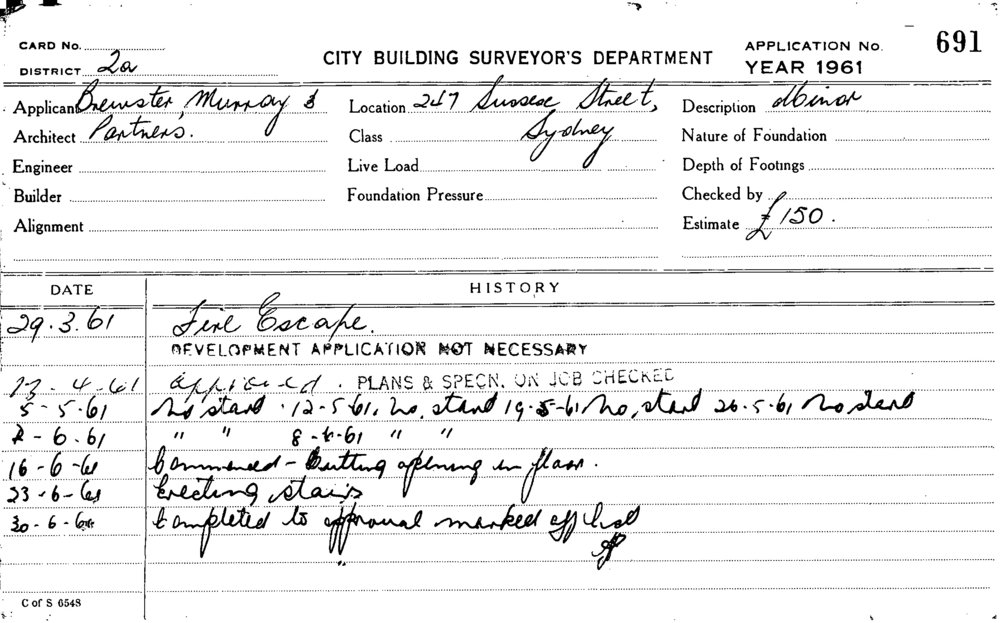 CARD No.
DISTRICT 2a
CITY BUILDING SURVEYOR'S DEPARTMENT
APPLICATION No. 691
YEAR 1961
Applicant Brewster, Murray &
Architect Partners.
Engineer
Builder
Alignment
Location 247 Sussex Street,
Class Sydney
Live Load
Foundation Pressure
Description Minor
Nature of Foundation
Depth of Footings
Checked by
Estimate £150.
DATE HISTORY
29.3.61 Fire Escape.
DEVELOPMENT APPLICATION NOT NECESSARY
4-61 approved. PLANS & SPECN. ON JOB CHECKED
5-5.61 No start. 12-5-61, No, start 19-5-61 No, start 26.5.61 No start
2-6.61 " " 8-6-61 " "
16-6-61 Commenced - Cutting opening in floor.
23-6-61 Erecting stairs
30-6-61 Completed to approval marked off list
"
C of S 6548